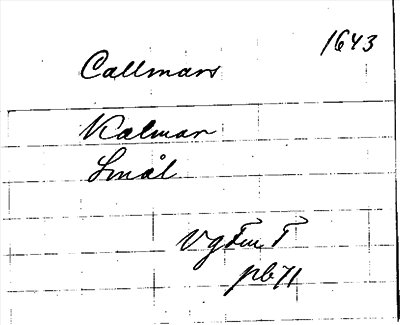 1643
Callmars
Kalmar
Smål
pb 71